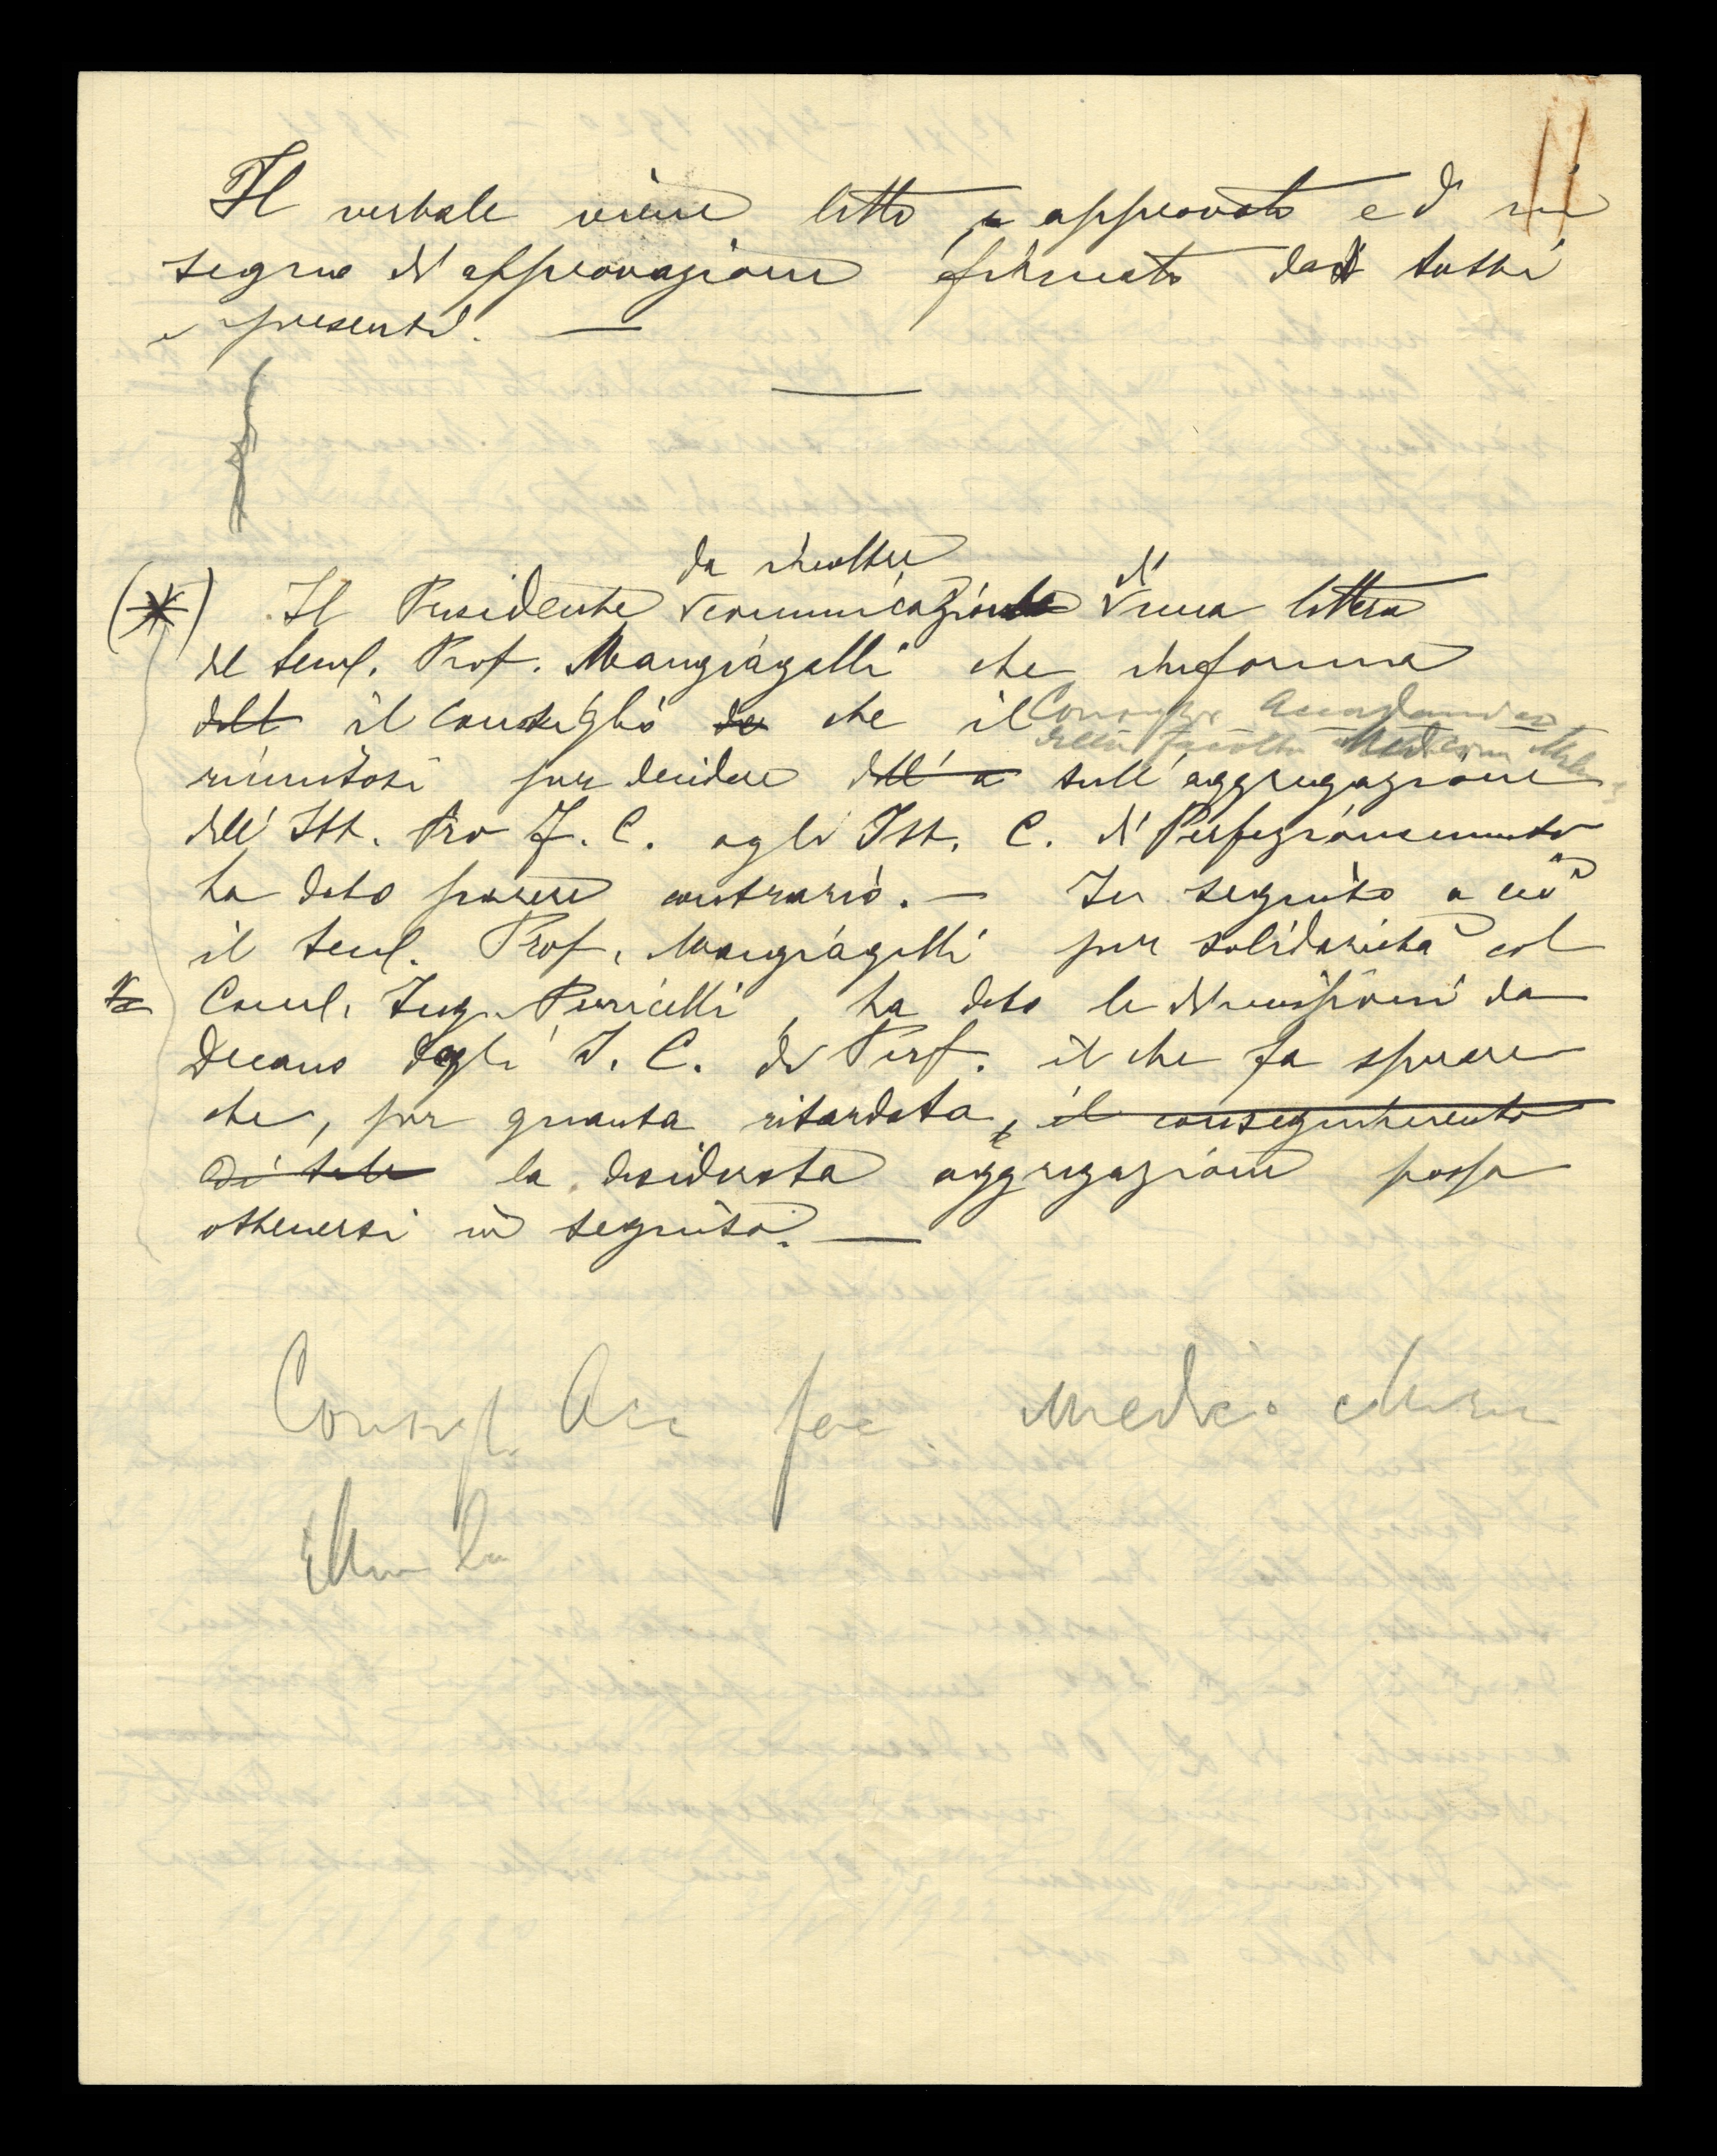 Il verbale viene letto e approvato ed in
segno di approvazione firmato da tutti
i presenti. —
da inoltre di
(*) Il Presidente comunicazione una lettera
del Sen. Prof. Mangiagalli che informa
dell il Consiglio de che il Consiglio Accademico
della Facoltà Medicina
riunitosi per decidere dell'a sull'aggregazione
dell'Ist. Pro J. C. agli Ist. C. di Perfezionamento
ha dato parere contrario. — In seguito a ciò
il Sen. Prof. Mangiagalli per solidarietà col
Comm. Ing. Puricelli, ha dato le dimissioni da
Decano degli I. C. di Perf. il che fa sperare
che, per quanto ritardata, il conseguimento
di tale la desiderata aggregazione possa
ottenersi in seguito. —
Consigl. Acc fac Medic